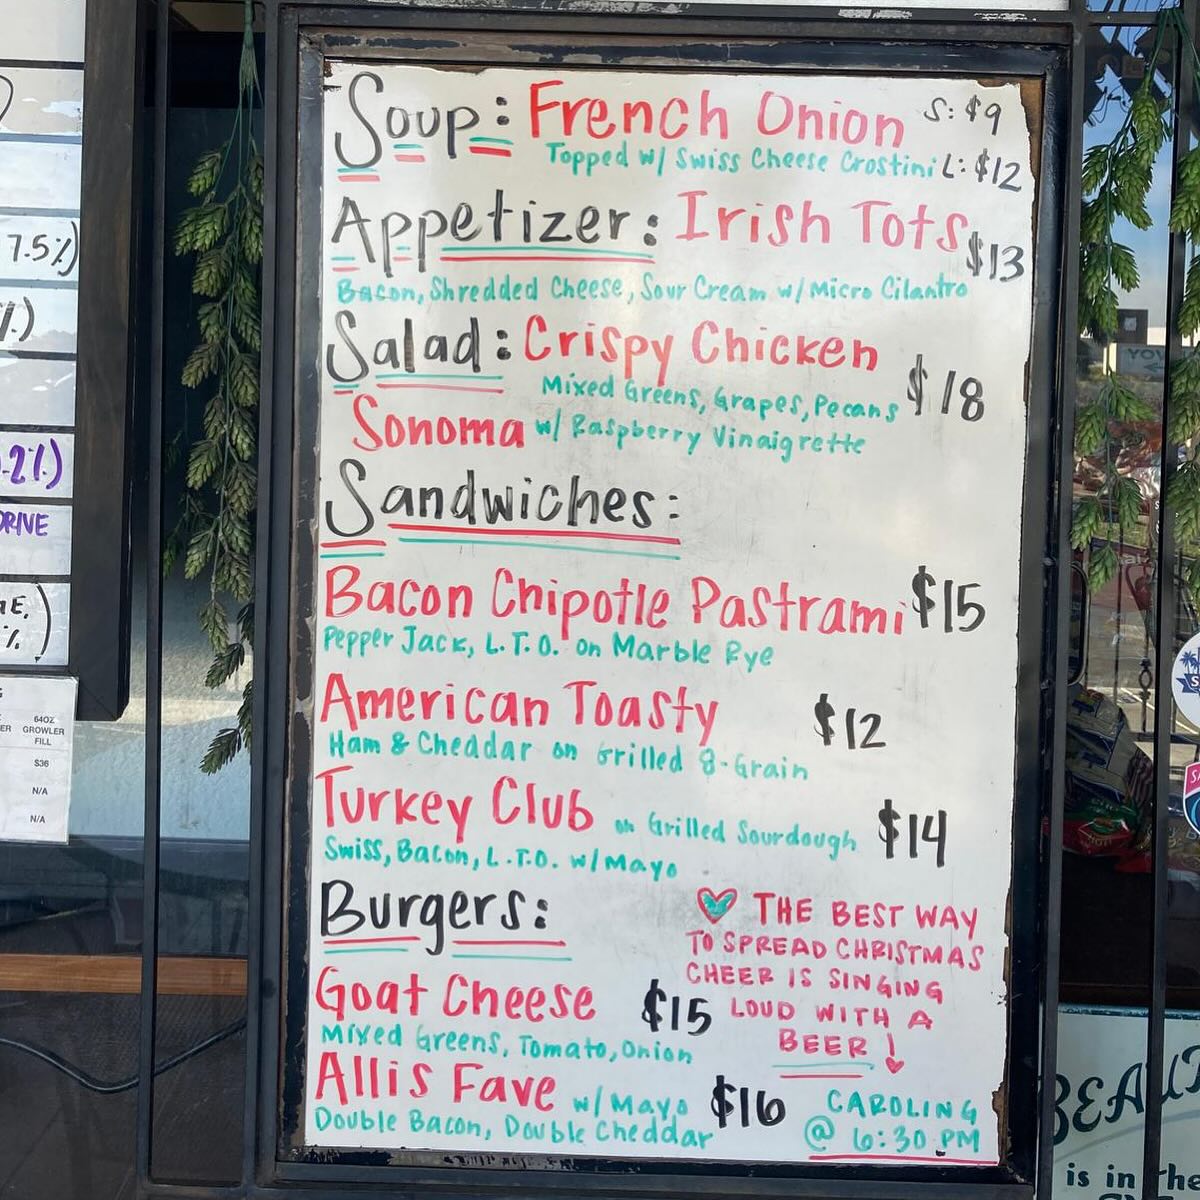 Soup: French Onion S: $9
Topped w/ Swiss Cheese Crostini L: $12
Appetizer: Irish Tots $13
Bacon, Shredded Cheese, Sour Cream w/ Micro Cilantro
Salad: Crispy Chicken $18
Mixed Greens, Grapes, Pecans
Sonoma w/ Raspberry Vinaigrette
Sandwiches:
Bacon Chipotle Pastrami $15
Pepper Jack, L.T.O. on Marble Rye
American Toasty $12
Ham & Cheddar on Grilled 8-Grain
Turkey Club on Grilled Sourdough $14
Swiss, Bacon, L.T.O. w/ Mayo
Burgers:
Goat Cheese $15
Mixed Greens, Tomato, Onion
Allis Fave w/ Mayo $16
Double Bacon, Double Cheddar
THE BEST WAY
TO SPREAD CHRISTMAS
CHEER IS SINGING
LOUD WITH A
BEER!
CAROLING
@ 6:30 PM
7.5%)
%)
.2%)
DRIVE
%)
64OZ
GROWLER
FILL
$36
N/A
N/A
is in the